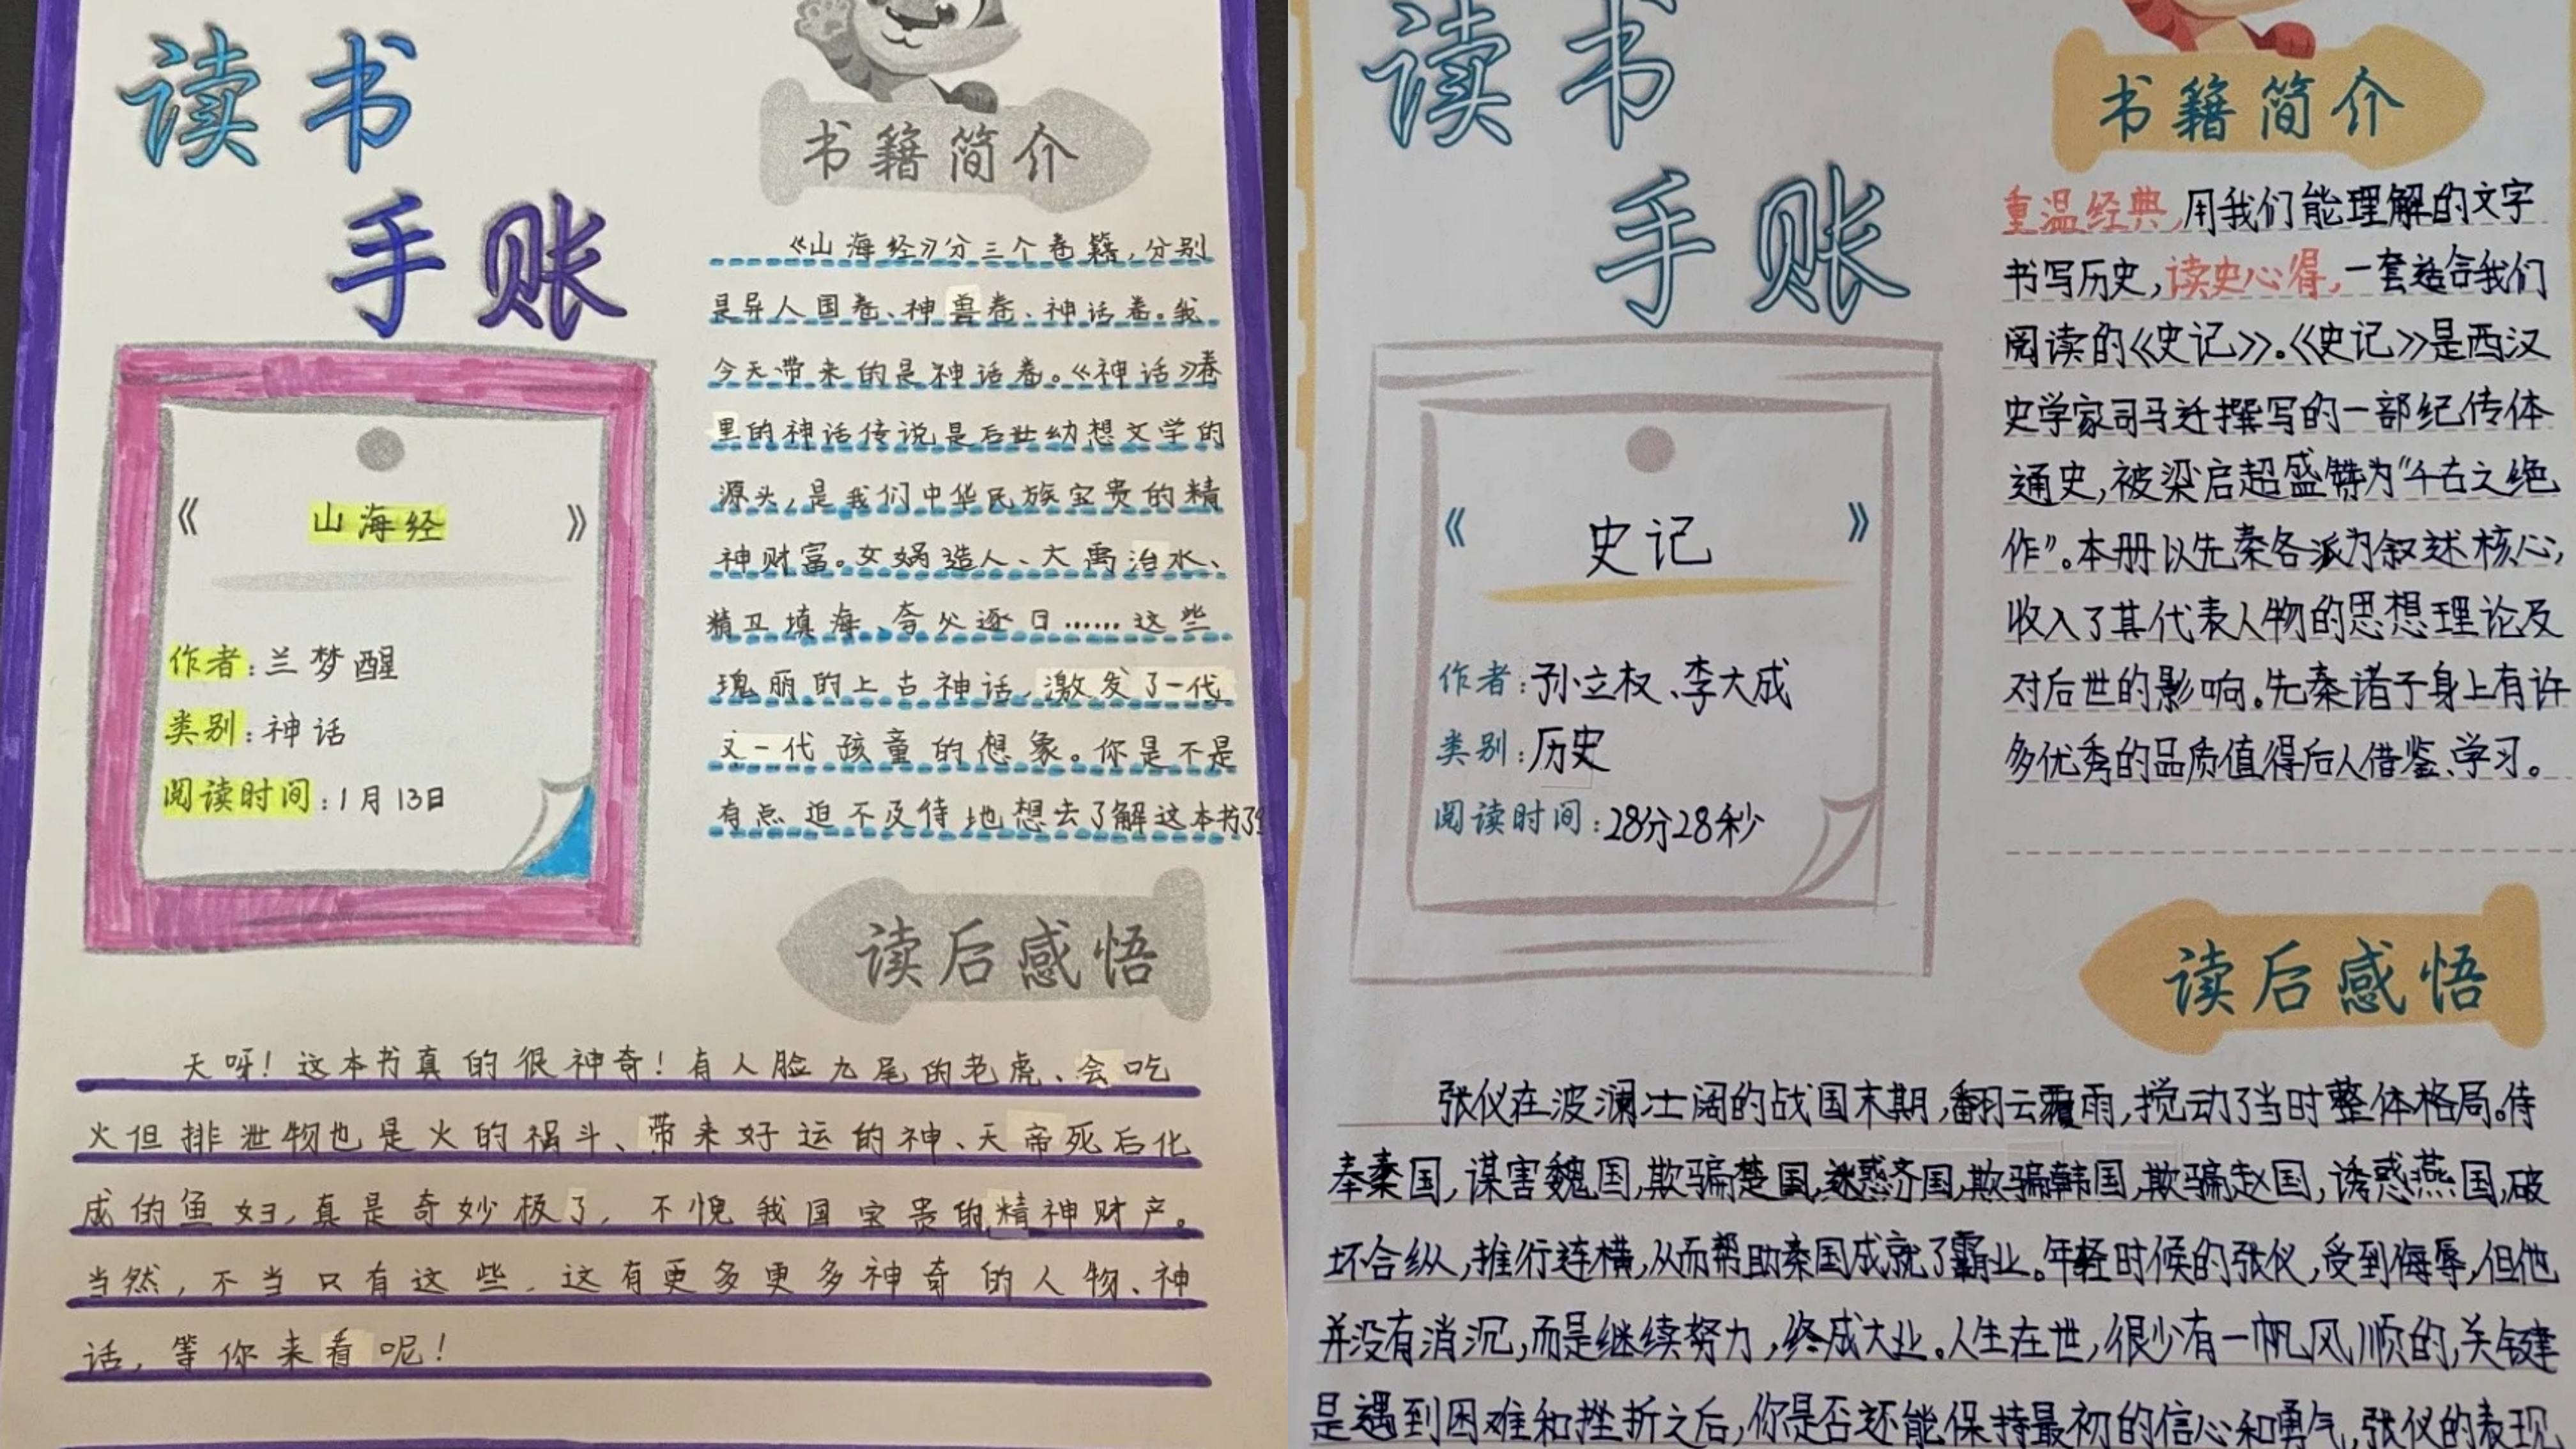 读书
手账
《山海经》
作者：兰梦醒
类别：神话
阅读时间：1月13日
书籍简介
《山海经》分三个卷籍，分别
是异人国卷、神兽卷、神话卷。我
今天带来的是神话卷。《神话》卷
里的神话传说是后世幼想文学的
源头，是我们中华民族宝贵的精
神财富。女娲造人、大禹治水、
精卫填海、夸父逐日……这些
瑰丽的上古神话，激发了一代
又一代孩童的想象。你是不是
有点迫不及待地想去了解这本书了
读后感悟
天呀！这本书真的很神奇！有人脸九尾的老虎、会吃
火但排泄物也是火的祸斗、带来好运的神、天帝死后化
成的鱼妇，真是奇妙极了，不愧我国宝贵的精神财产。
当然，不当只有这些，这有更多更多神奇的人物、神
话，等你来看呢！
读书
手账
《史记》
作者：孙立权、李大成
类别：历史
阅读时间：28分28秒
书籍简介
重温经典，用我们能理解的文字
书写历史，读史心得，一套适合我们
阅读的《史记》。《史记》是西汉
史学家司马迁撰写的一部纪传体
通史，被梁启超盛赞为“千古之绝
作”。本册以先秦各派为叙述核心，
收入了其代表人物的思想理论及
对后世的影响。先秦诸子身上有许
多优秀的品质值得后人借鉴、学习。
读后感悟
张仪在波澜壮阔的战国末期，翻云覆雨，搅动了当时整体格局。侍
奉秦国，谋害魏国，欺骗楚国，迷惑齐国，欺骗韩国，欺骗赵国，诱惑燕国，破
坏合纵，推行连横，从而帮助秦国成就了霸业。年轻时候的张仪，受到侮辱，但他
并没有消沉，而是继续努力，终成大业。人生在世，很少有一帆风顺的，关键
是遇到困难和挫折之后，你是否还能保持最初的信心和勇气，张仪的表现